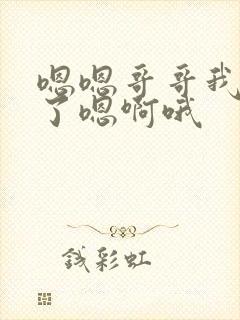 嗯嗯哥哥我
了嗯啊哦
钱彩虹